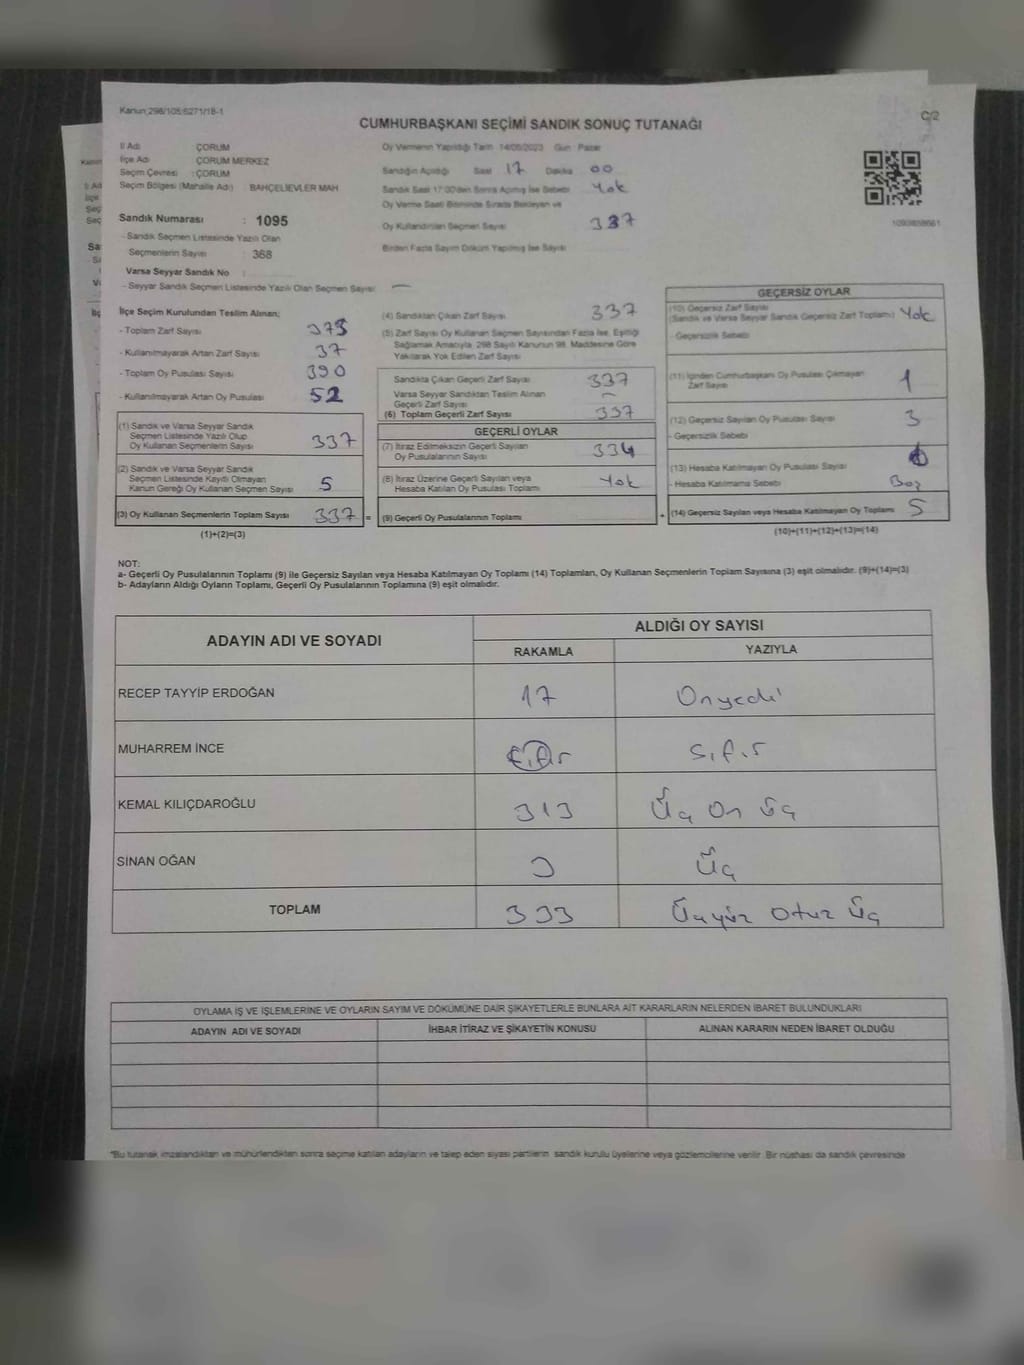 Kanun;298/105;6271/18-1
C/2
CUMHURBAŞKANI SEÇİMİ SANDIK SONUÇ TUTANAĞI
İl Adı ÇORUM
İlçe Adı ÇORUM MERKEZ
Seçim Çevresi : ÇORUM
Seçim Bölgesi (Mahalle Adı) : BAHÇELİEVLER MAH
Sandık Numarası : 1095
- Sandık Seçmen Listesinde Yazılı Olan
Seçmenlerin Sayısı : 368
Varsa Seyyar Sandık No :
- Seyyar Sandık Seçmen Listesinde Yazılı Olan Seçmen Sayısı: —
Oy Vermenin Yapıldığı Tarih 14/05/2023 Gün : Pazar
Sandığın Açıldığı Saat 17 Dakika 00
Sandık Saat 17:00'den Sonra Açılmış İse Sebebi Yok
Oy Verme Saati Bitiminde Sırada Bekleyen ve
Oy Kullandırılan Seçmen Sayısı 337
Birden Fazla Sayım Döküm Yapılmış İse Sayısı
İlçe Seçim Kurulundan Teslim Alınan;
- Toplam Zarf Sayısı
- Kullanılmayarak Artan Zarf Sayısı 37
- Toplam Oy Pusulası Sayısı 390
- Kullanılmayarak Artan Oy Pusulası 52
(1) Sandık ve Varsa Seyyar Sandık
Seçmen Listesinde Yazılı Olup
Oy Kullanan Seçmenlerin Sayısı 337
(2) Sandık ve Varsa Seyyar Sandık
Seçmen Listesinde Kayıtlı Olmayan
Kanun Gereği Oy Kullanan Seçmen Sayısı 5
(3) Oy Kullanan Seçmenlerin Toplam Sayısı 337 =
(1)+(2)=(3)
(4) Sandıktan Çıkan Zarf Sayısı 337
(5) Zarf Sayısı Oy Kullanan Seçmen Sayısından Fazla İse, Eşitliği
Sağlamak Amacıyla, 298 Sayılı Kanunun 98. Maddesine Göre
Yakılarak Yok Edilen Zarf Sayısı
Sandıkta Çıkan Geçerli Zarf Sayısı 337
Varsa Seyyar Sandıktan Teslim Alınan
Geçerli Zarf Sayısı —
(6) Toplam Geçerli Zarf Sayısı 337
GEÇERLİ OYLAR
(7) İtiraz Edilmeksizin Geçerli Sayılan
Oy Pusulalarının Sayısı 334
(8) İtiraz Üzerine Geçerli Sayılan veya
Hesaba Katılan Oy Pusulası Toplamı Yok
(9) Geçerli Oy Pusulalarının Toplamı +
GEÇERSİZ OYLAR
(10) Geçersiz Zarf Sayısı
(Sandık ve Varsa Seyyar Sandık Geçersiz Zarf Toplamı) Yok
- Geçersizlik Sebebi
(11) İçinden Cumhurbaşkanı Oy Pusulası Çıkmayan
Zarf Sayısı 1
(12) Geçersiz Sayılan Oy Pusulası Sayısı 3
- Geçersizlik Sebebi
(13) Hesaba Katılmayan Oy Pusulası Sayısı
- Hesaba Katılmama Sebebi Boş
(14) Geçersiz Sayılan veya Hesaba Katılmayan Oy Toplamı 5
(10)+(11)+(12)+(13)=(14)
NOT:
a- Geçerli Oy Pusulalarının Toplamı (9) ile Geçersiz Sayılan veya Hesaba Katılmayan Oy Toplamı (14) Toplamları, Oy Kullanan Seçmenlerin Toplam Sayısına (3) eşit olmalıdır. (9)+(14)=(3)
b- Adayların Aldığı Oyların Toplamı, Geçerli Oy Pusulalarının Toplamına (9) eşit olmalıdır.
ADAYIN ADI VE SOYADI
ALDIĞI OY SAYISI
RAKAMLA YAZIYLA
RECEP TAYYİP ERDOĞAN 17 Onyedi
MUHARREM İNCE Sıfır Sıfır
KEMAL KILIÇDAROĞLU 313 Üç On üç
SİNAN OĞAN 3 Üç
TOPLAM 333 Üçyüz otuz üç
OYLAMA İŞ VE İŞLEMLERİNE VE OYLARIN SAYIM VE DÖKÜMÜNE DAİR ŞİKAYETLERLE BUNLARA AİT KARARLARIN NELERDEN İBARET BULUNDUKLARI
ADAYIN ADI VE SOYADI İHBAR İTİRAZ VE ŞİKAYETİN KONUSU ALINAN KARARIN NEDEN İBARET OLDUĞU
*Bu tutanak imzalandıktan ve mühürlendikten sonra seçime katılan adayların ve talep eden siyasi partilerin sandık kurulu üyelerine veya gözlemcilerine verilir. Bir nüshası da sandık çevresinde